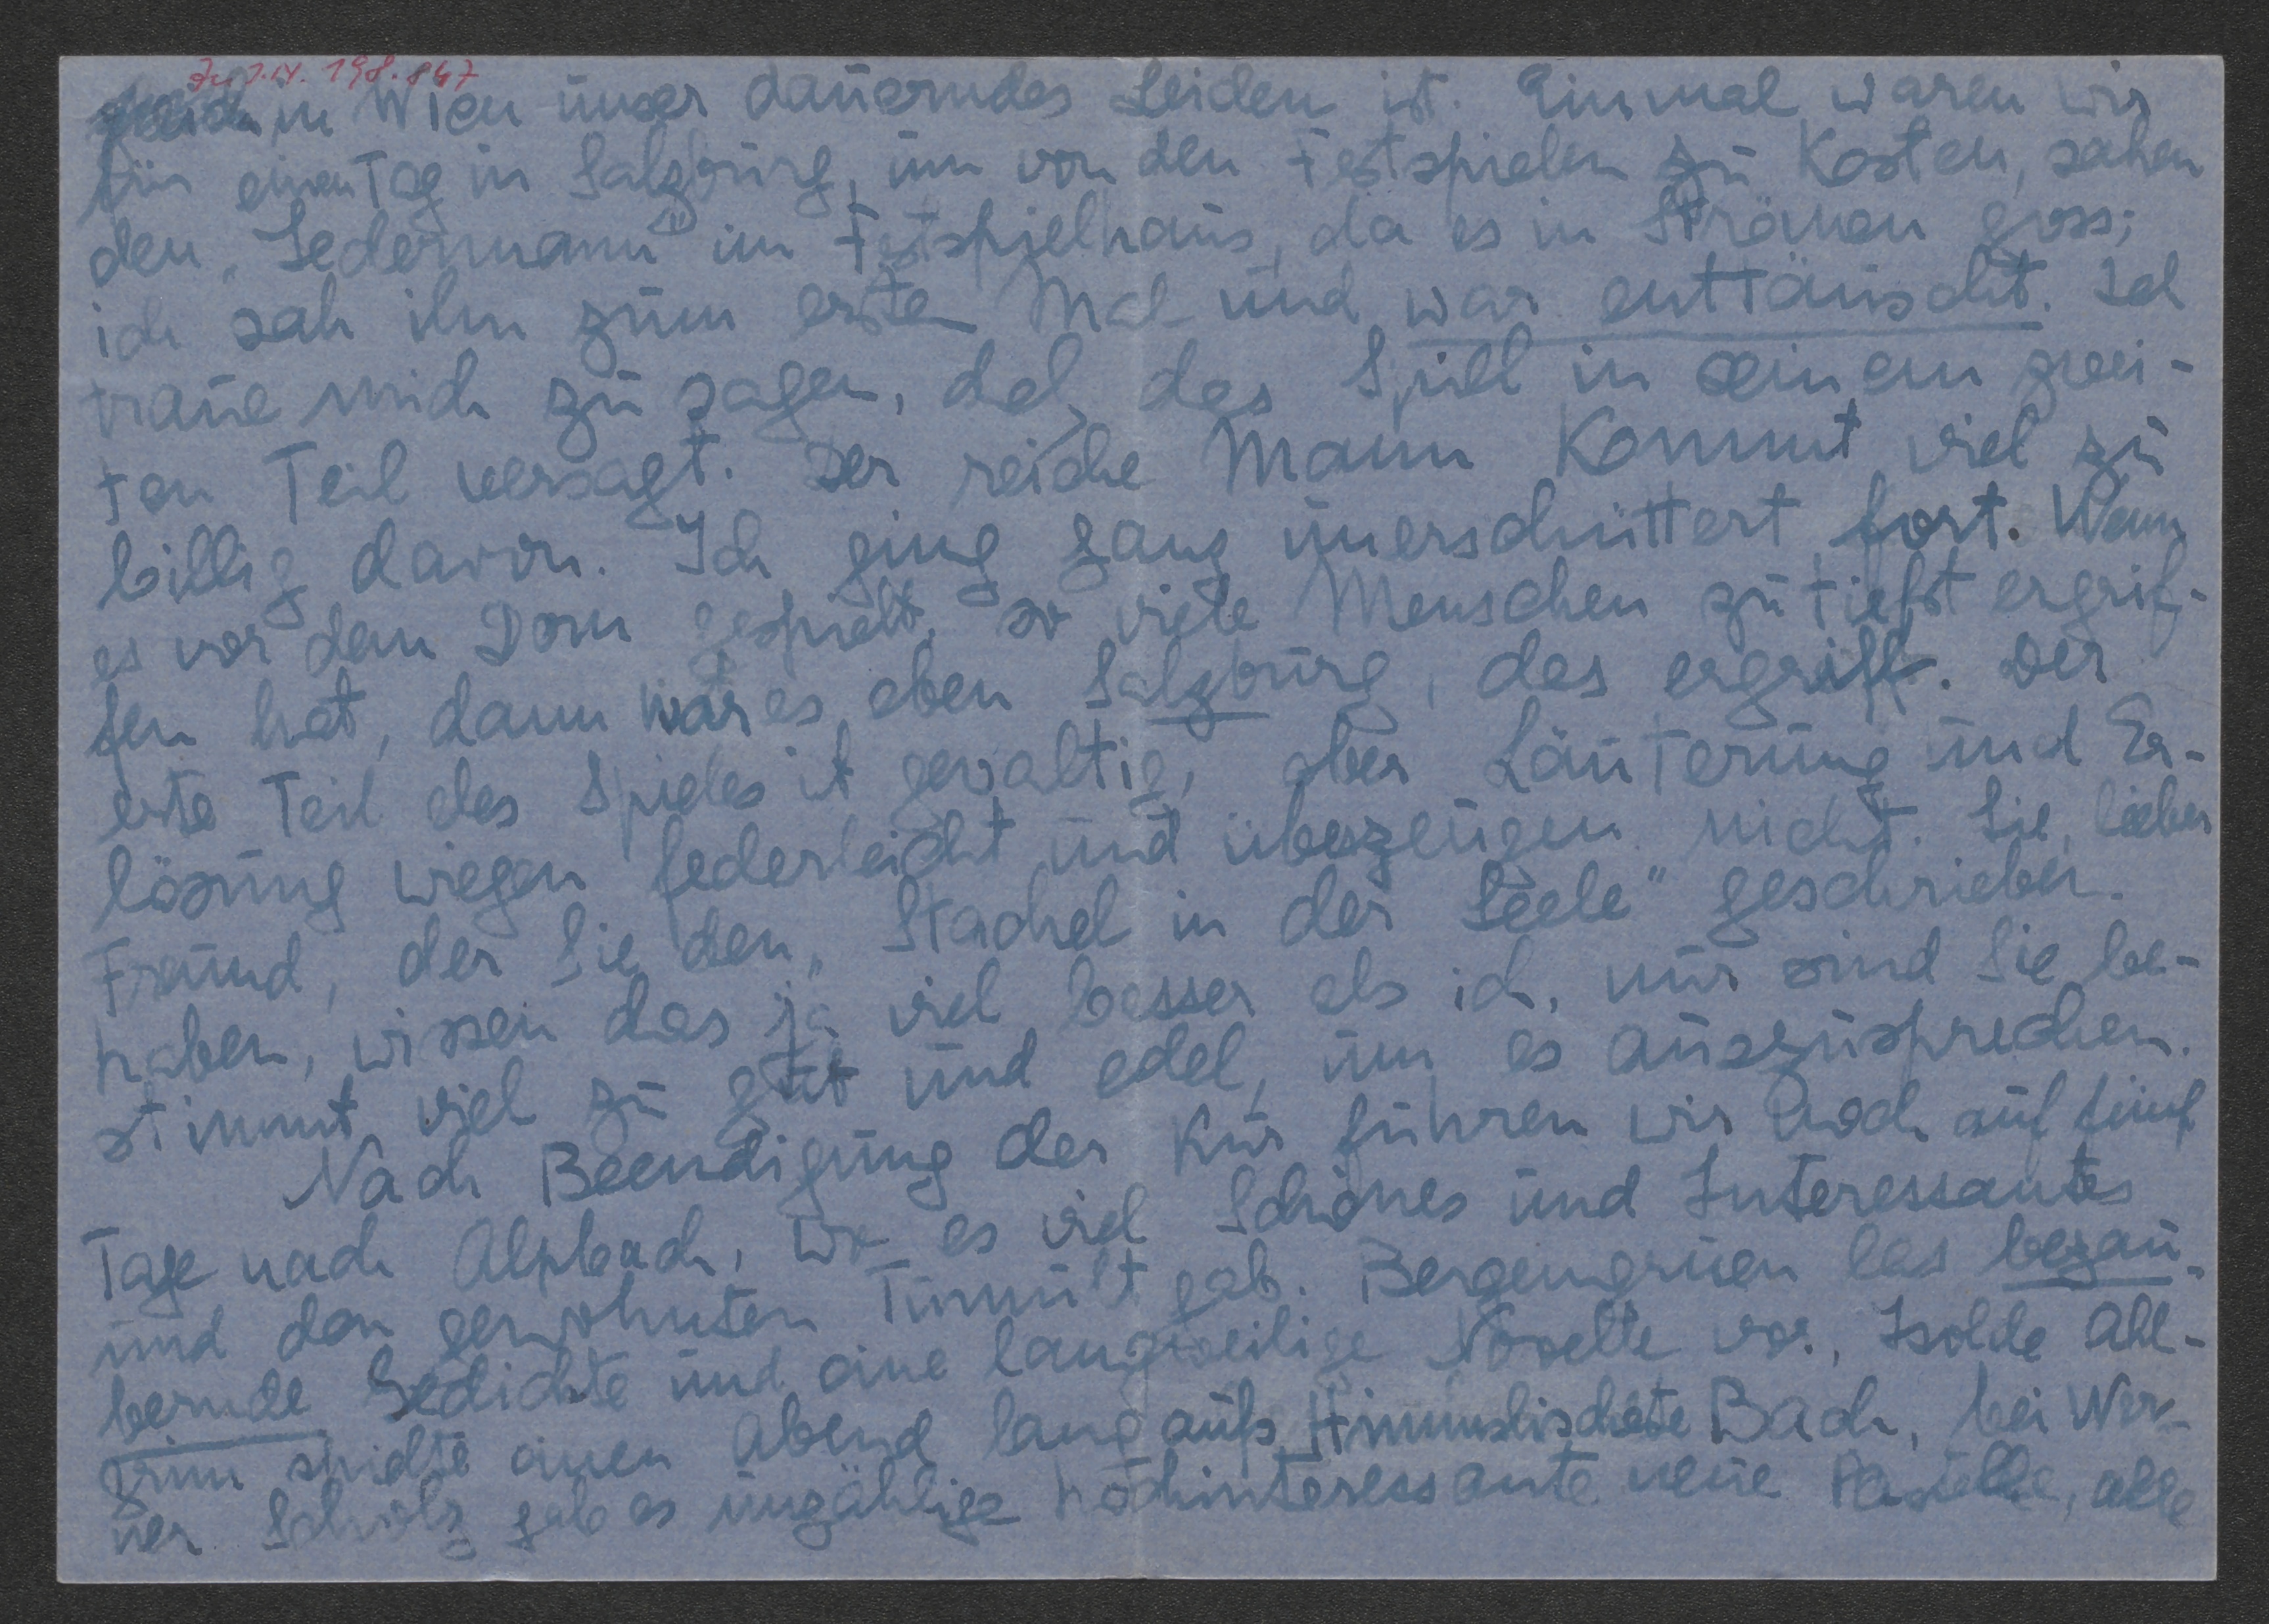 Zu I.N. 198.847
in Wien unser dauerndes Leiden ist. Einmal waren wir
für einen Tag in Salzburg, um von den Festspielen zu Kosten, sahen
den „Jedermann" im Festspielhaus, da es in Strömen goss;
ich sah ihn zum ersten Mal und war enttäuscht. Ich
traue mich zu sagen, daß das Spiel in seinem zwei-
ten Teil versagt. Der reiche Mann Kommt viel zu
billig davon. Ich ging ganz unerschüttert fort. Wenn
es vor dem Dom gespielt, so viele Menschen zu tiefst ergrif-
fen hat, dann war es eben Salzburg, das ergriff. Der
erste Teil des Spieles ist gewaltig, aber Läuterung und Er-
lösung wiegen federleicht und überzeugen nicht. Sie, lieber
Freund, der Sie den „Stachel in der Seele" geschrieben
haben, wissen das ja viel besser als ich, nur sind Sie be-
stimmt viel zu gut und edel, um es auszusprechen.
Nach Beendigung der Kur fuhren wir noch auf fünf
Tage nach Alpbach, wo es viel Schönes und Interessantes
und den gewohnten Tumult gab. Bergengruen las bezau-
bernde Gedichte und eine langweilige Novelle vor, Isolde Ahl-
grim spielte einen Abend lang aufs Himmlischste Bach, bei Wer-
ner Scholz gab es unzählige hochinteressante neue Pastelle, alle